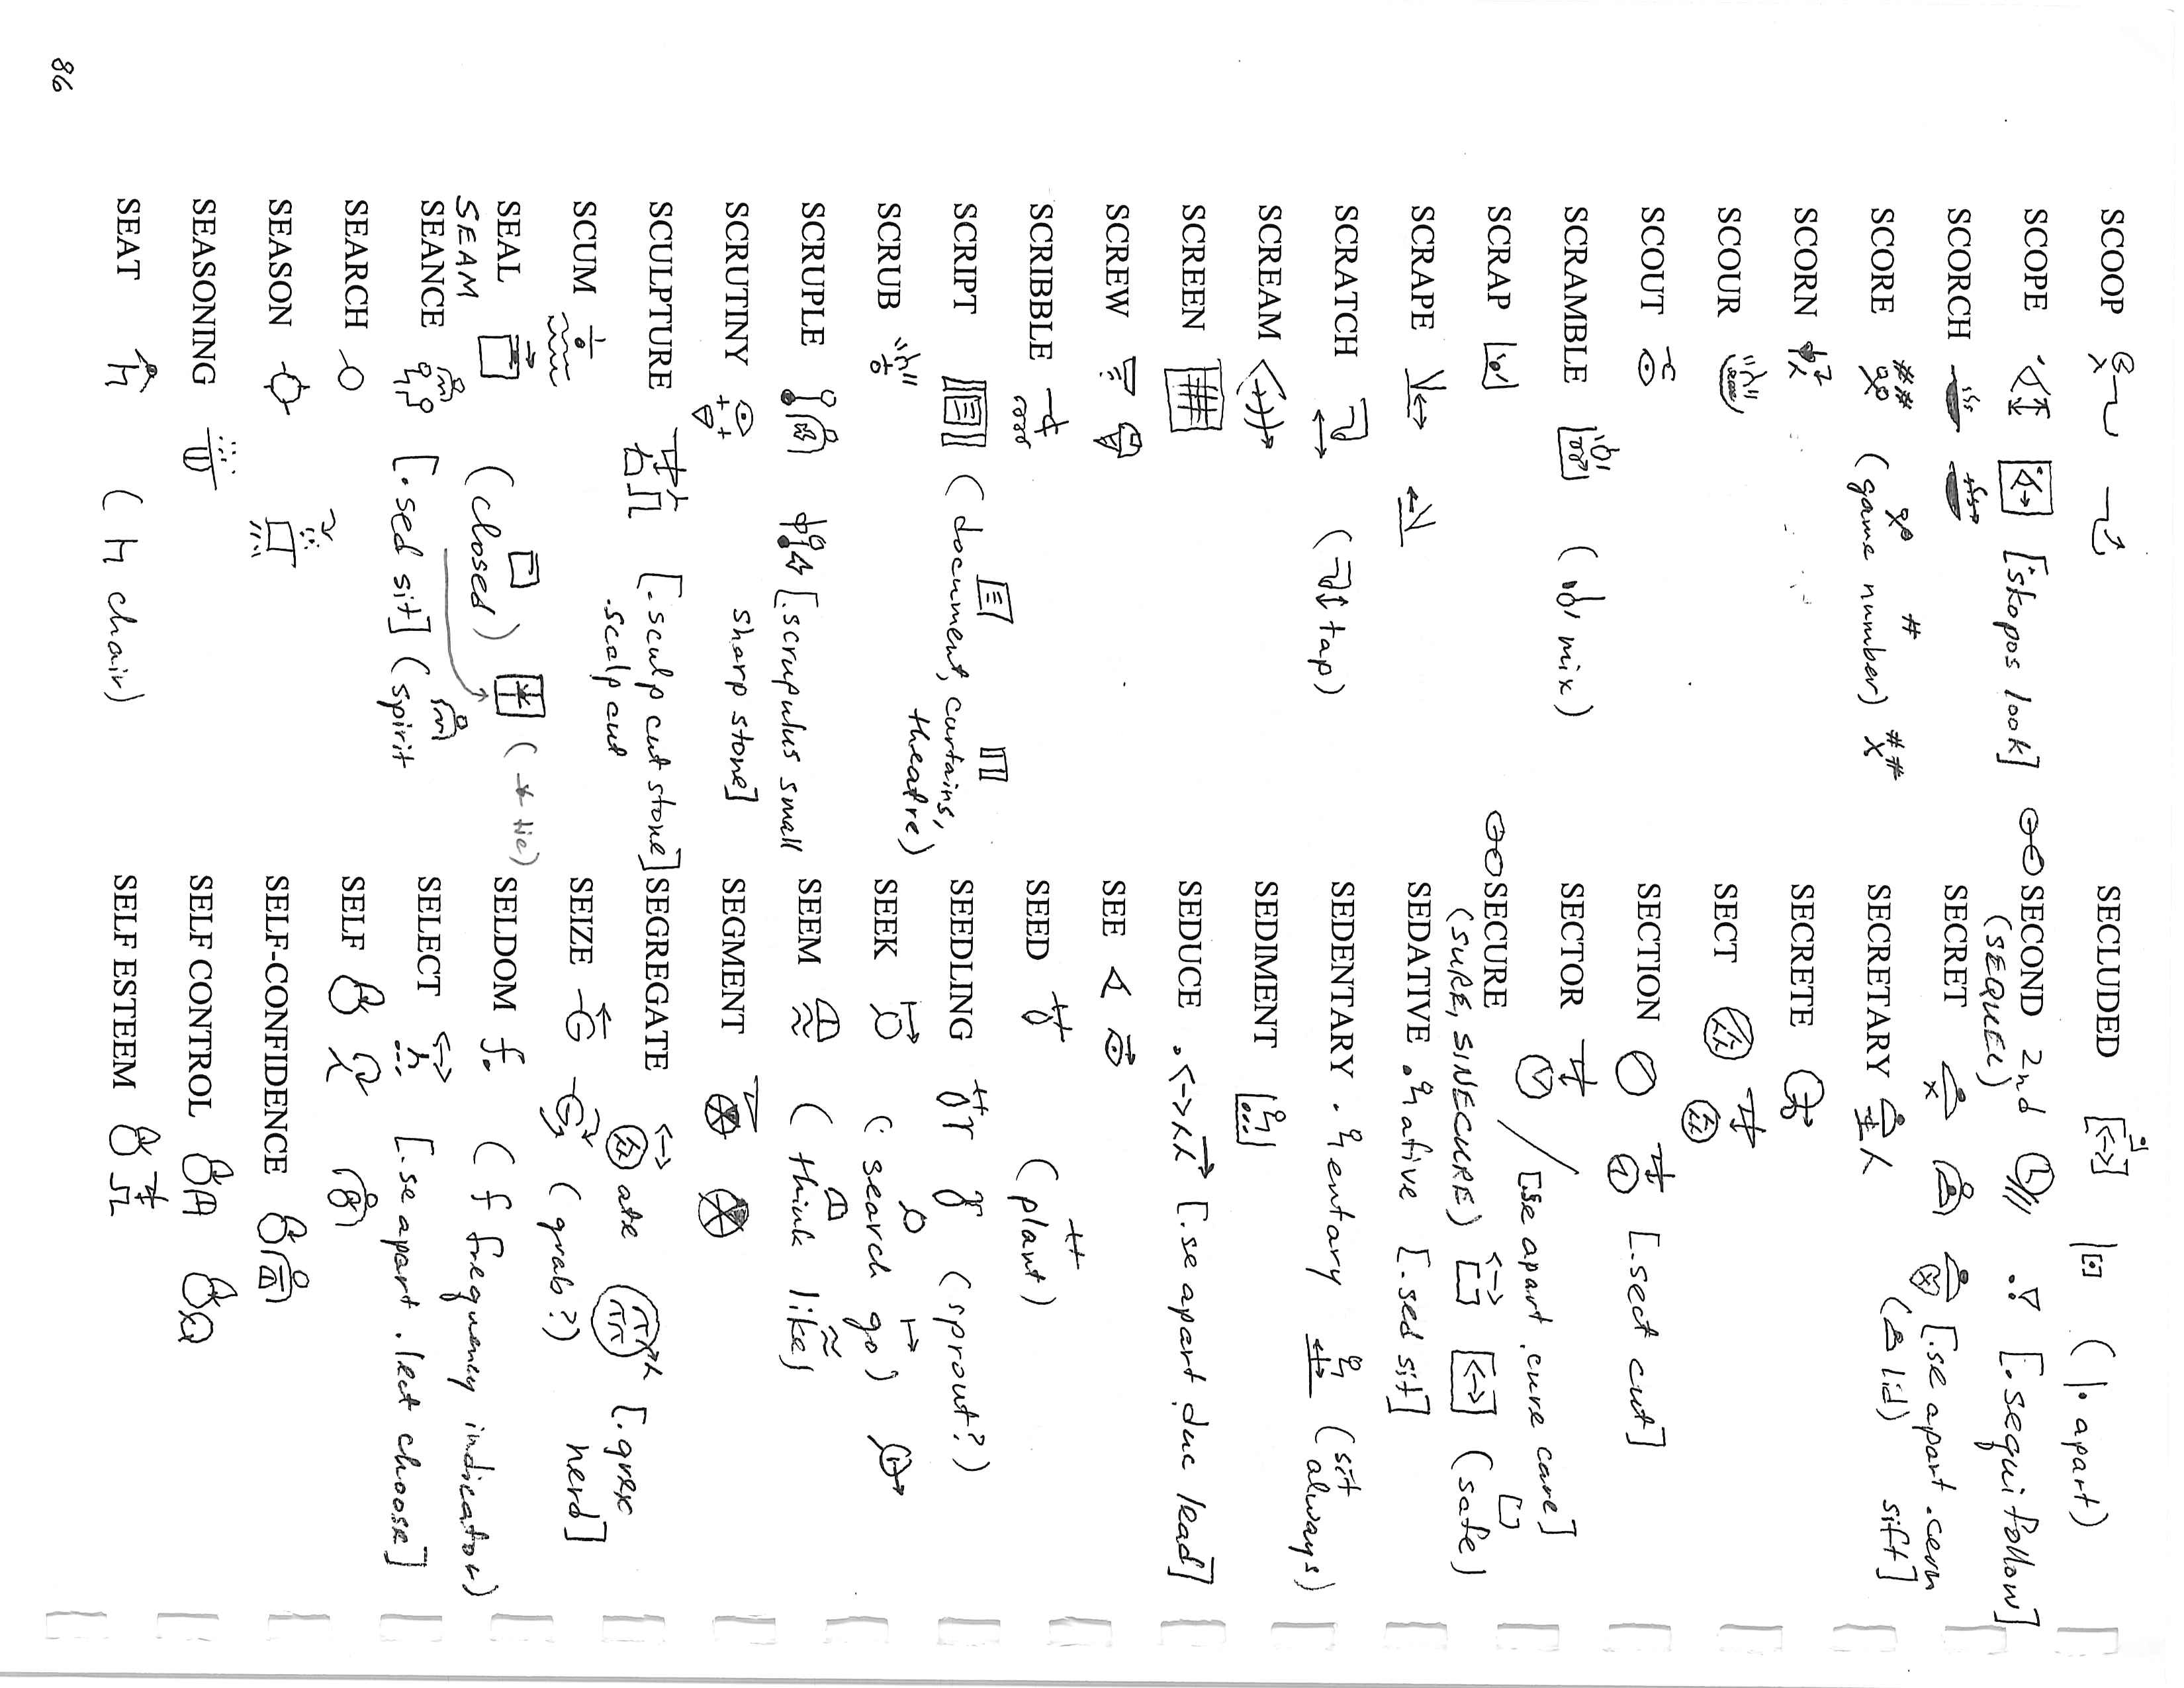 SCOOP
SCOPE [skopos look]
SCORCH
SCORE (game number) # ##
SCORN
SCOUR
SCOUT
SCRAMBLE (mix)
SCRAP
SCRAPE
SCRATCH (tap)
SCREAM
SCREEN
SCREW
SCRIBBLE
SCRIPT (document, curtains,
theatre)
SCRUB
SCRUPLE [.scrupulus small
sharp stone]
SCRUTINY
SCULPTURE [.sculp cut stone]
.scalp cut
SCUM
SEAL (closed) (tie)
SEAM
SEANCE [.sed sit] (spirit
SEARCH
SEASON
SEASONING
SEAT (h chair)
SECLUDED (apart)
SECOND 2nd [.sequi follow]
(SEQUEL)
SECRET [.se apart .cern
sift]
SECRETARY (lid)
SECRETE
SECT
SECTION [.sect cut]
SECTOR [.se apart .cure care]
SECURE (safe)
(SURE, SINECURE)
SEDATIVE .ative [.sed sit]
SEDENTARY .entary (sit
always)
SEDIMENT
SEDUCE [.se apart .duc lead]
SEE
SEED (plant)
SEEDLING (sprout?)
SEEK (search go)
SEEM (think like)
SEGMENT
SEGREGATE ate [.greg
herd]
SEIZE (grab?)
SELDOM f. (f frequency indicator)
SELECT [.se apart .lect choose]
SELF
SELF-CONFIDENCE
SELF CONTROL
SELF ESTEEM
86